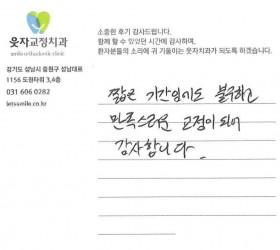 웃자교정치과
smile orthodontic clinic
경기도 성남시 중원구 성남대로
1156 도원타워 3,4층
031 606 0282
letssmile.co.kr
소중한 후기 감사드립니다.
함께 할 수 있었던 시간에 감사하며,
환자분들의 소리에 귀 기울이는 웃자치과가 되도록 하겠습니다.
짧은 기간임에도 불구하고
만족스러운 교정이 되어
감사합니다.